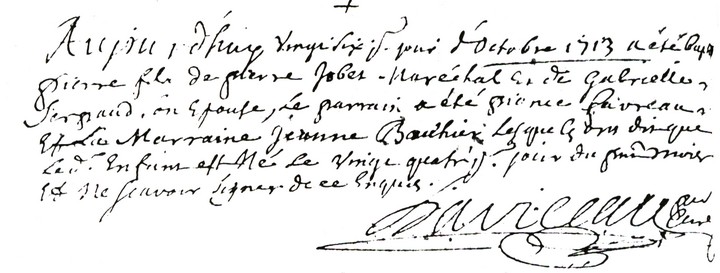 Aujourd'huy vingt six.e jour d'Octobre 1713 a été bap
pierre fils de pierre Jobet Maréchal Et de Gabrielle
son Epouse, Le parrain a été pierre favreau
Et La Marraine Jeanne Bauhier Lesquels ont dit que
Led. Enfant est Né Le vingt quatri.e jour du mois
Et Ne scavoir signer de ce Enquis.
Daviceau
curé